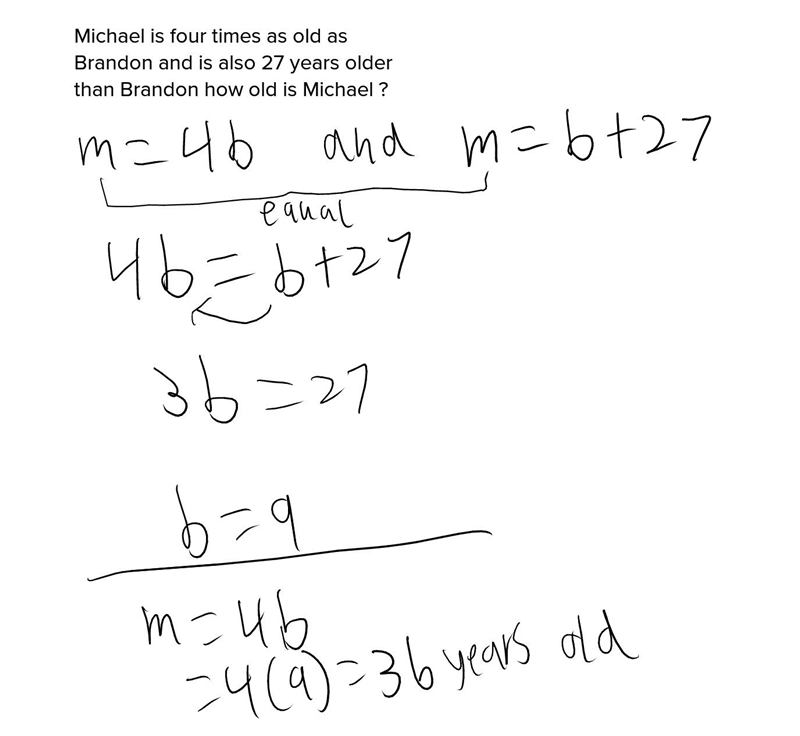 Michael is four times as old as
Brandon and is also 27 years older
than Brandon how old is Michael ?
m=4b and m=b+27
equal
4b=b+27
3b=27
b=9
m=4b
=4(9)=36 years old